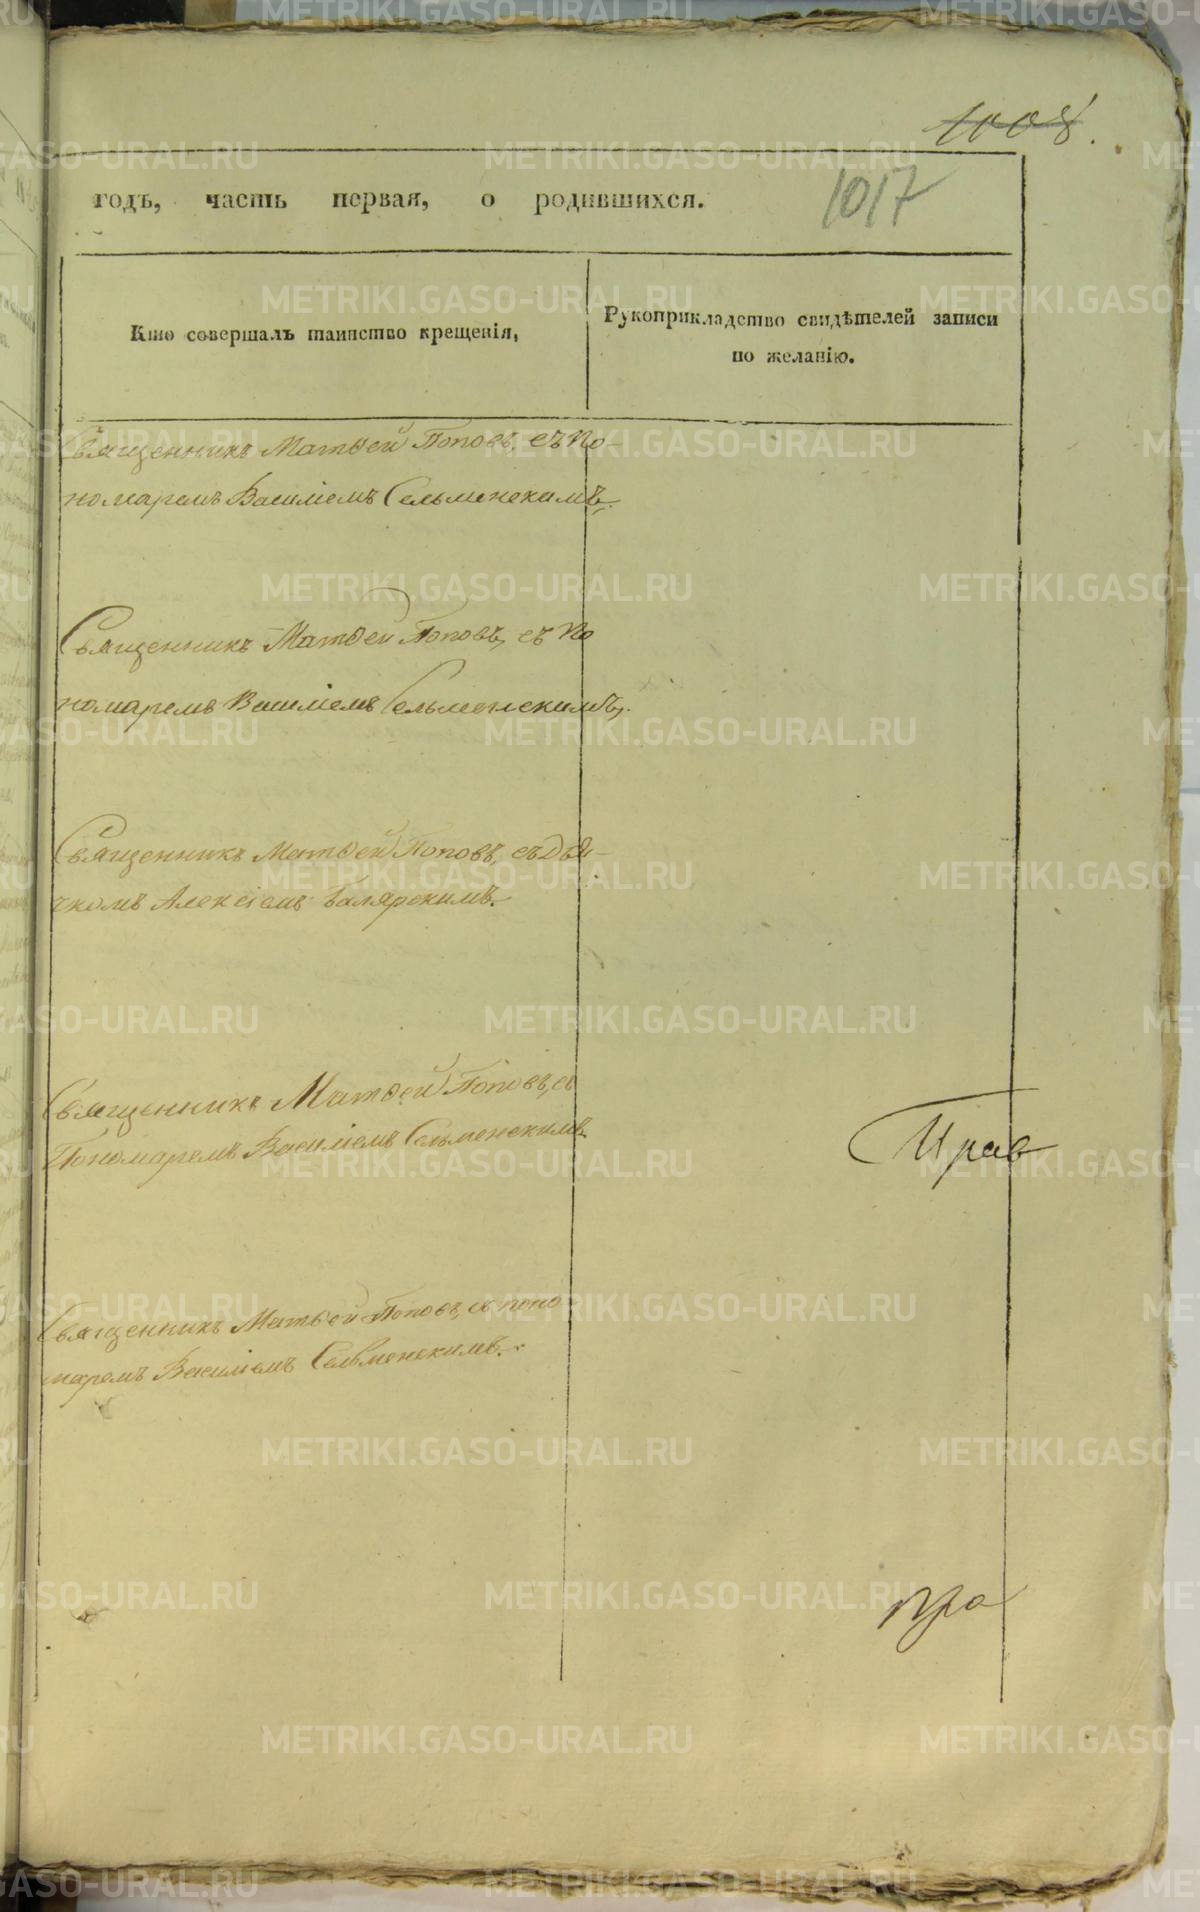 1008.
1017
годъ, часть первая, о родившихся.
Кто совершалъ таинство крещенія,
Рукоприкладство свидѣтелей записи
по желанію.
Священникъ Матѳей Поповъ, съ По-
номаремъ Василіемъ Сельменскимъ,
Священникъ Матѳей Поповъ, съ По
номаремъ Василіемъ Сельменскимъ,
Священникъ Матѳей Поповъ, съ Дья-
чкомъ Алексіемъ
Священникъ Матѳей Поповъ, съ
Пономаремъ Василіемъ Сельменскимъ
Священникъ Матѳей Поповъ, съ поно
маремъ Василіемъ Сельменскимъ.
METRIKI.GASO-URAL.RU